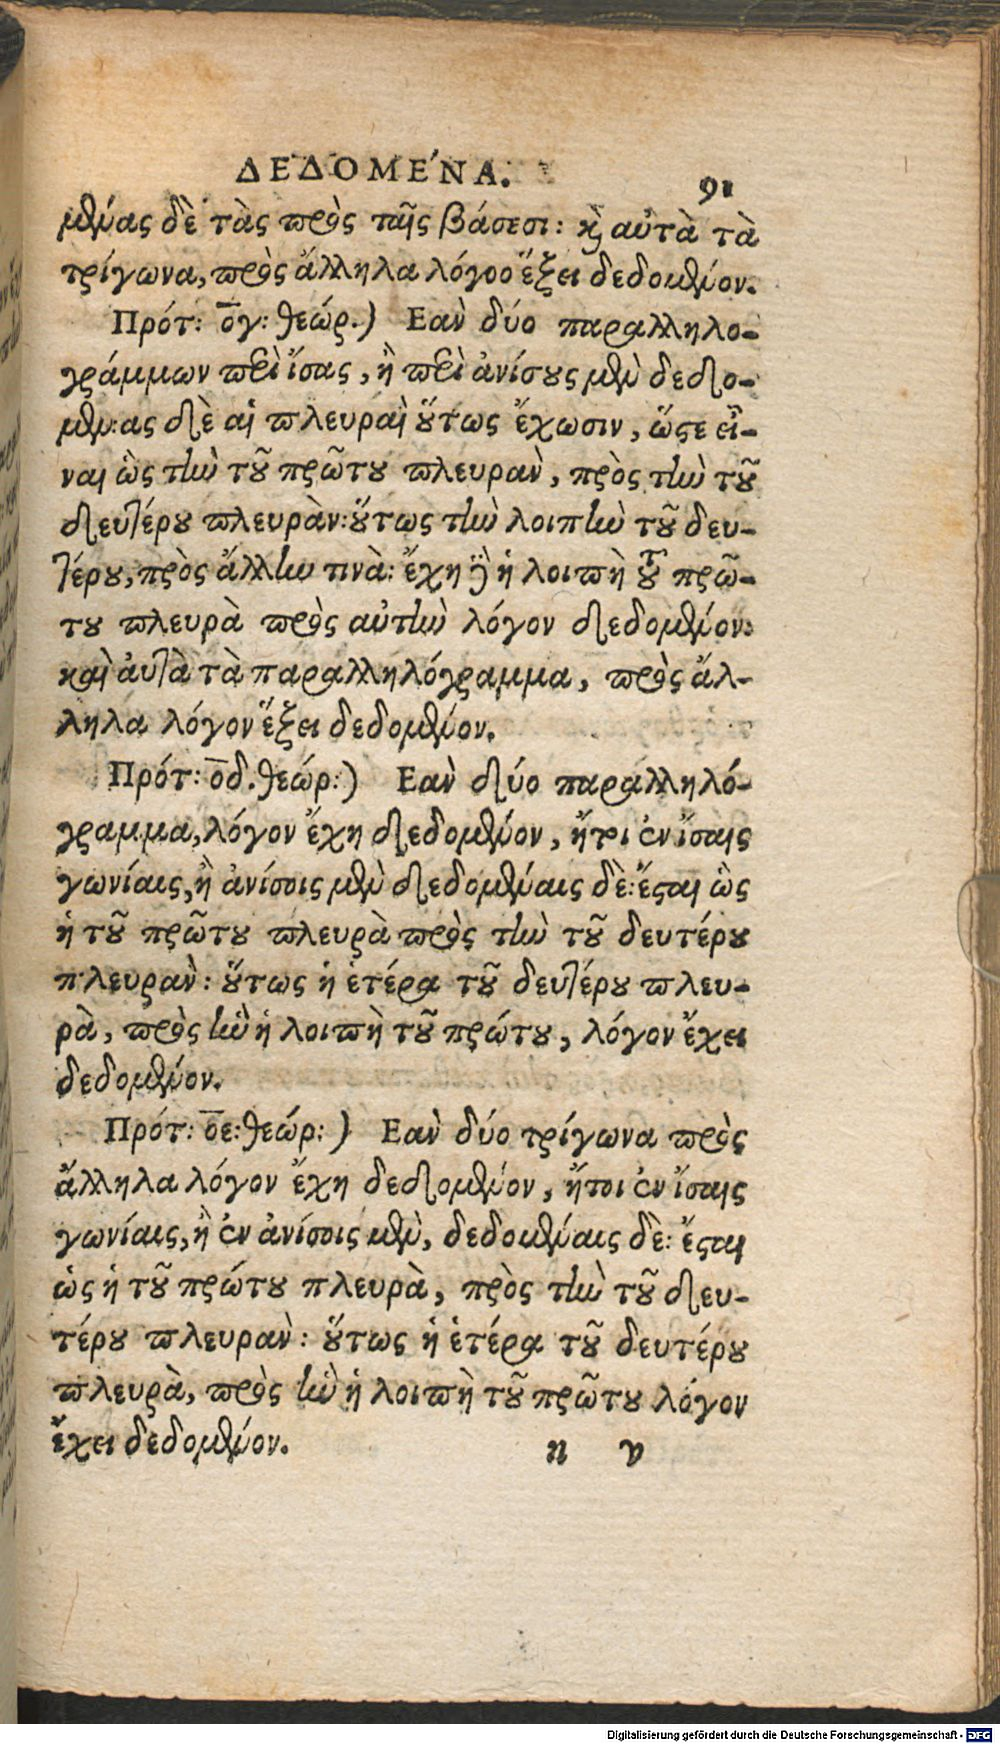 ΔΕΔΟΜΕ΄ΝΑ.
91
μένας δὲ τὰς πρὸς ταῖς βάσεσι: καὶ αὐτὰ τὰ
τρίγωνα, πρὸς ἄλληλα λόγοο ἕξει δεδομένον.
Πρότ: ο̅γ: θεώρ.) Εαν δύο παραλληλο-
γράμμων περὶ ἴσας, ἢ περὶ ἀνίσους μὲν δεδο-
μέν:ας δὲ αἱ πλευραὶ οὕτως ἔχωσιν, ὥστε εἶ-
ναι ὡς τὴν τοῦ πρῶτου πλευρὰν, πρὸς τὴν τοῦ
δευτέρου πλευρὰν:οὕτως τὴν λοιπὴν τοῦ δευ-
τέρου, πρὸς ἄλλην τινὰ: ἔχη δὲ ἡ λοιπὴ τοῦ πρῶ-
του πλευρὰ πρὸς αὐτὴν λόγον δεδομένον:
καὶ ἀυτὰ τὰ παραλληλόγραμμα, πρὸς ἄλ-
ληλα λόγον ἕξει δεδομένον.
Πρότ: ο̅δ. θεώρ:) Εαν δύο παραλληλό-
γραμμα, λόγον ἔχη δεδομένον, ἤτοι ἐν ἴσαις
γωνίαις, ἢ ἀνίσοις μὲν δεδομέναις δὲ: ἔσται ὡς
ἡ τοῦ πρῶτου πλευρὰ πρὸς τὴν τοῦ δευτέρου
πλευρὰν: οὕτως ἡ ἑτέρα τοῦ δευτέρου πλευ-
ρὰ, πρὸς ἣν ἡ λοιπὴ τοῦ πρώτου, λόγον ἔχει
δεδομένον.
Πρότ: ο̅ε: θεώρ:) Εαν δύο τρίγωνα πρὸς
ἄλληλα λόγον ἔχη δεδομένον, ἤτοι ἐν ἴσαις
γωνίαις, ἢ ἐν ἀνίσοις μὲν, δεδομέναις δὲ: ἔσται
ὡς ἡ τοῦ πρώτου πλευρὰ, πρὸς τὴν τοῦ δευ-
τέρου πλευρὰν: οὕτως ἡ ἑτέρα τοῦ δευτέρου
πλευρὰ, πρὸς ἣν ἡ λοιπὴ τοῦ πρῶτου λόγον
ἔχει δεδομένον.
n v
Digitalisierung gefördert durch die Deutsche Forschungsgemeinschaft - DFG